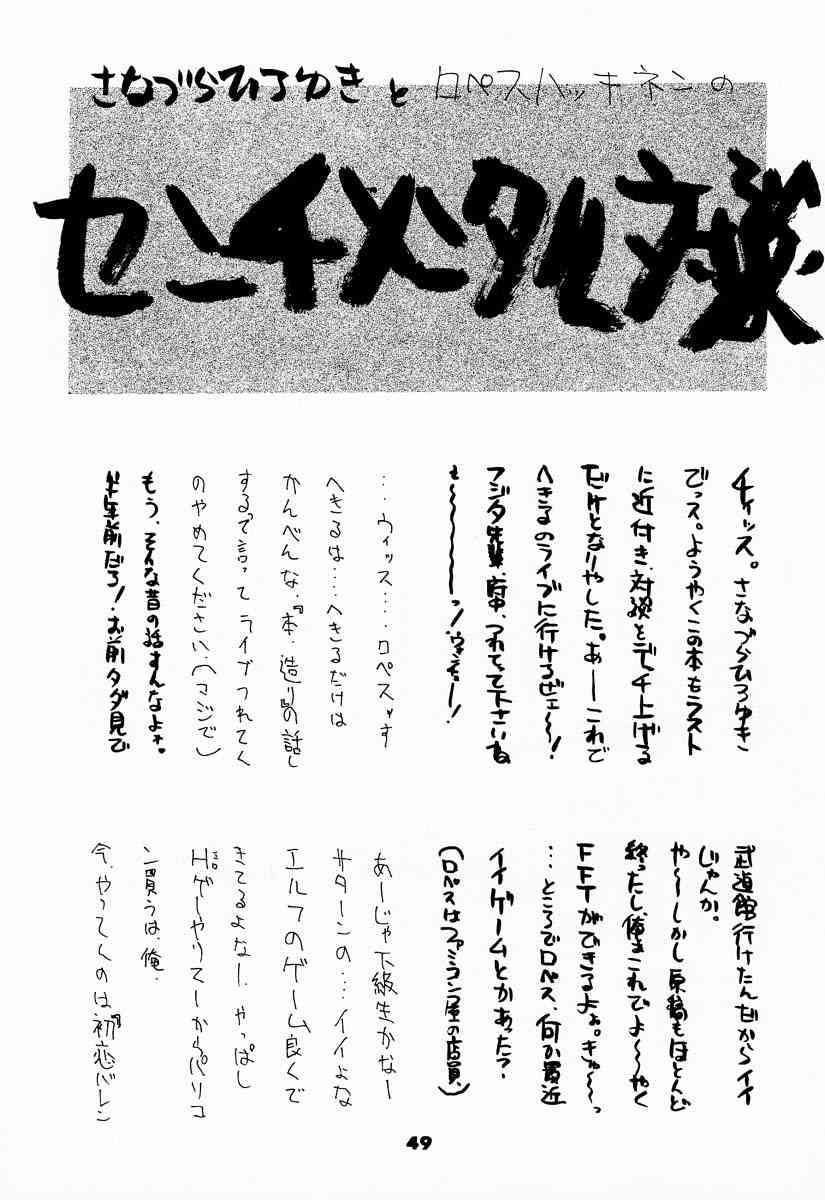 さなづらひろゆきとロペスハッキネンの
センチメンタル対談
チィッス。さなづらひろゆき
でっス。ようやくこの本もラスト
に近付き、対談をデッチ上げる
だけとなりやした。あーこれで
へきるのライブに行けるぜェ〜!
フジタ先輩、府中、つれてって下さいね
ェ〜〜〜〜っ!ウキョー!
…ウィッス…ロペスッす
へきるは…へきるだけは
かんべんな、『本、造り』の話し
するって言ってライブつれてく
のやめてください、(マジで)
もう、そんな昔の話すんなよォ。
半年前だろ!お前タダ見で
武道館行けたんだからイイ
じゃんか。
や〜しかし原稿もほとんど
終ったし、俺もこれでよ〜やく
FFTができるよぉ。きゅ〜〜っ
…ところでロペス、何か最近
イイゲームとかあった?
(ロペスはファミコン屋の店員)
あーじゃ下級生かなー
サターンの…イイよな
エルフのゲーム良くで
きてるよなー、やっぱし
Hゲーやりてーからパソコ
ン買うは、俺、
今、やってくのは『初恋バレン
49